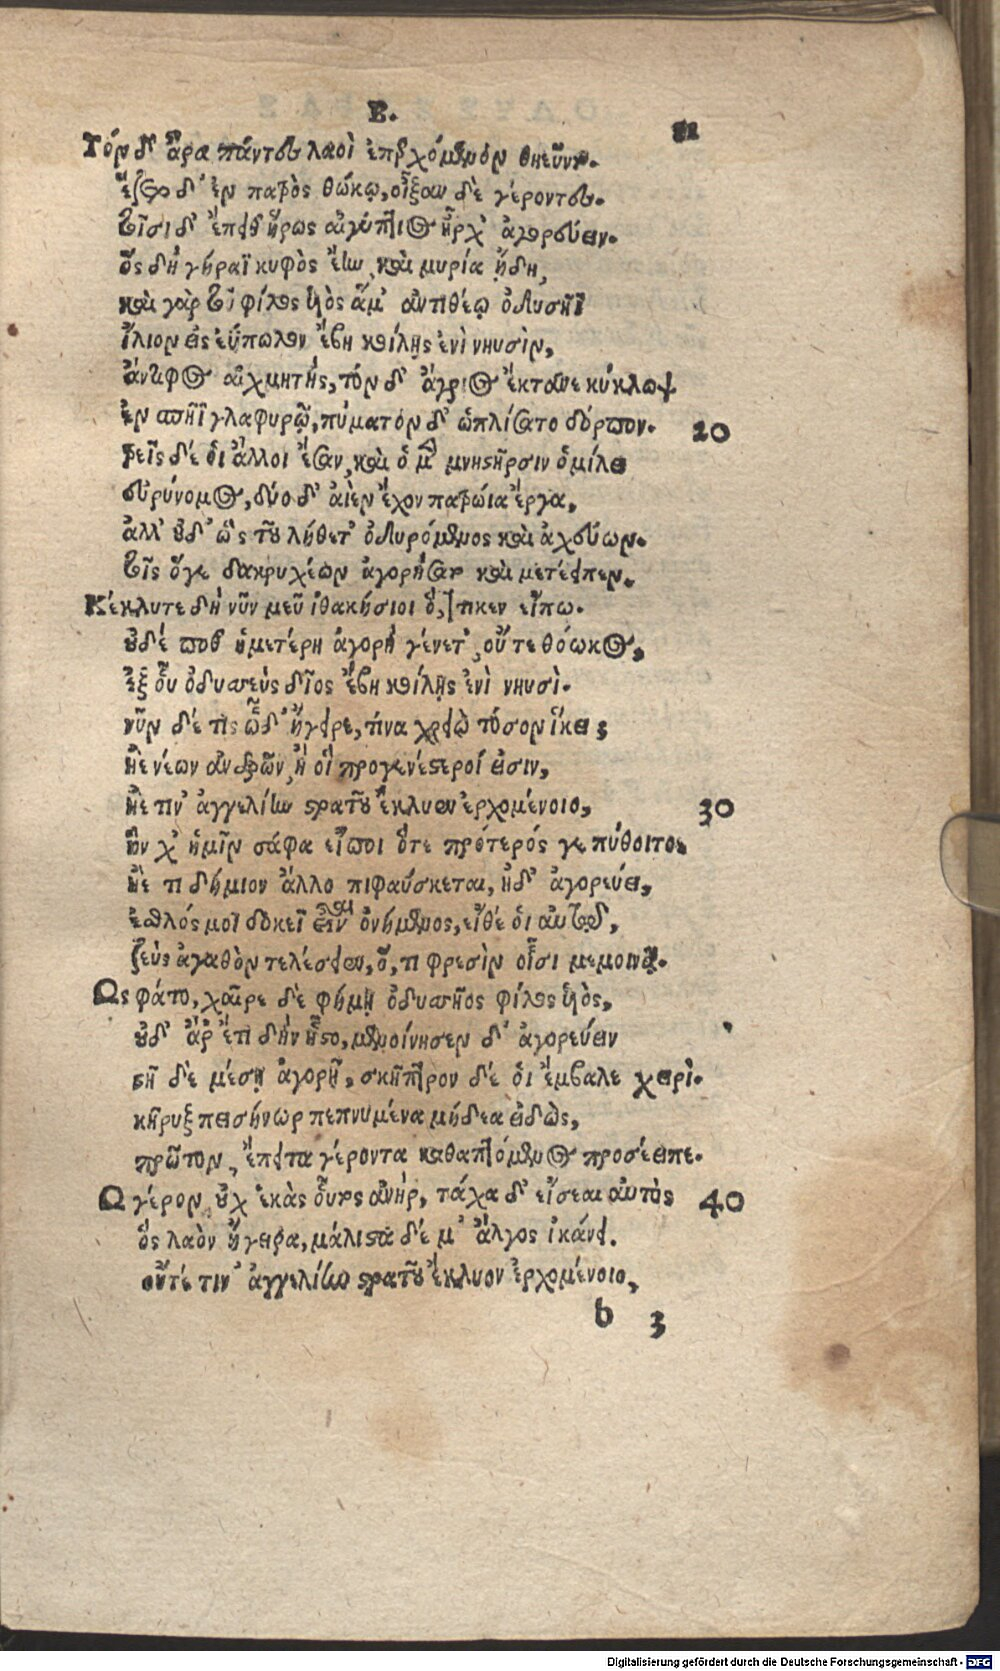 Β.
Τὸν δ' ἄρα πάντες λαοὶ ἐπερχόμενον θηεῦντο.
ἕζετο δ' ἐν πατρὸς θώκῳ, οἶξαν δὲ γέροντες.
τοῖσι δ' ἔπειθ' ἥρως αἰγύπτιος ἦρχ' ἀγορεύειν.
ὃς δὴ γήραϊ κυφὸς ἔην, καὶ μυρία ᾔδη,
καὶ γὰρ τοῦ φίλος υἱὸς ἅμ' ἀντιθέῳ ὀδυσῆϊ
ἴλιον εἰς εὔπωλον ἔβη κοίλῃς ἐνὶ νηυσὶν,
ἄντιφος αἰχμητὴς, τὸν δ' ἄγριος ἔκτανε κύκλωψ
ἐν σπῆϊ γλαφυρῷ, πύματον δ' ὡπλίσατο δόρπον.
20
τρεῖς δέ οἱ ἄλλοι ἔσαν, καὶ ὁ μὲν μνηστῆρσιν ὁμίλει
εὐρύνομος, δύο δ' αἰὲν ἔχον πατρώια ἔργα,
ἀλλ' οὐδ' ὣς τοῦ λήθετ' ὀδυρόμενος καὶ ἀχεύων.
τοῖς ὅγε δακρυχέων ἀγορήσατο καὶ μετέειπεν.
Κέκλυτε δὴ νῦν μεῦ ἰθακήσιοι ὅ,ττικεν εἴπω.
οὐδέ ποθ' ἡμετέρη ἀγορὴ γένετ', οὔτε θόωκος,
ἐξ οὗ ὀδυσσεὺς δῖος ἔβη κοίλῃς ἐνὶ νηυσὶ.
νῦν δέ τις ὧδ' ἤγειρε, τίνα χρειὼ τόσον ἵκει;
ἠὲ νέων ἀνδρῶν, ἢ οἳ προγενέστεροί εἰσιν,
ἠέ τιν' ἀγγελίην στρατοῦ ἔκλυεν ἐρχομένοιο,
30
ἥν χ' ἡμῖν σάφα εἴποι ὅτε πρότερός γε πύθοιτο.
ἠέ τι δήμιον ἄλλο πιφαύσκεται, ἠδ' ἀγορεύει,
ἐσθλός μοι δοκεῖ εἶναι ὀνήμενος, εἴθέ οἱ αὐτῷ,
ζεὺς ἀγαθὸν τελέσειεν, ὅ,τι φρεσὶν οἷσι μενοινᾷ.
Ως φάτο, χαῖρε δὲ φήμῃ ὀδυσσῆος φίλος υἱὸς,
οὐδ' ἄρ' ἔτι δὴν ἧστο, μενοίνησεν δ' ἀγορεύειν
στῆ δὲ μέσῃ ἀγορῇ, σκῆπτρον δέ οἱ ἔμβαλε χειρὶ.
κῆρυξ πεισήνωρ πεπνυμένα μήδεα εἰδὼς,
πρῶτον, ἔπειτα γέροντα καθαπτόμενος προσέειπε.
Ω γέρον, οὐχ ἑκὰς οὗτος ἀνὴρ, τάχα δ' εἴσεαι αὐτὸς
40
ὃς λαὸν ἤγειρα, μάλιστα δέ μ' ἄλγος ἱκάνει.
οὔτέ τιν' ἀγγελίην στρατοῦ ἔκλυον ἐρχομένοιο,
b 3
Digitalisierung gefördert durch die Deutsche Forschungsgemeinschaft - DFG